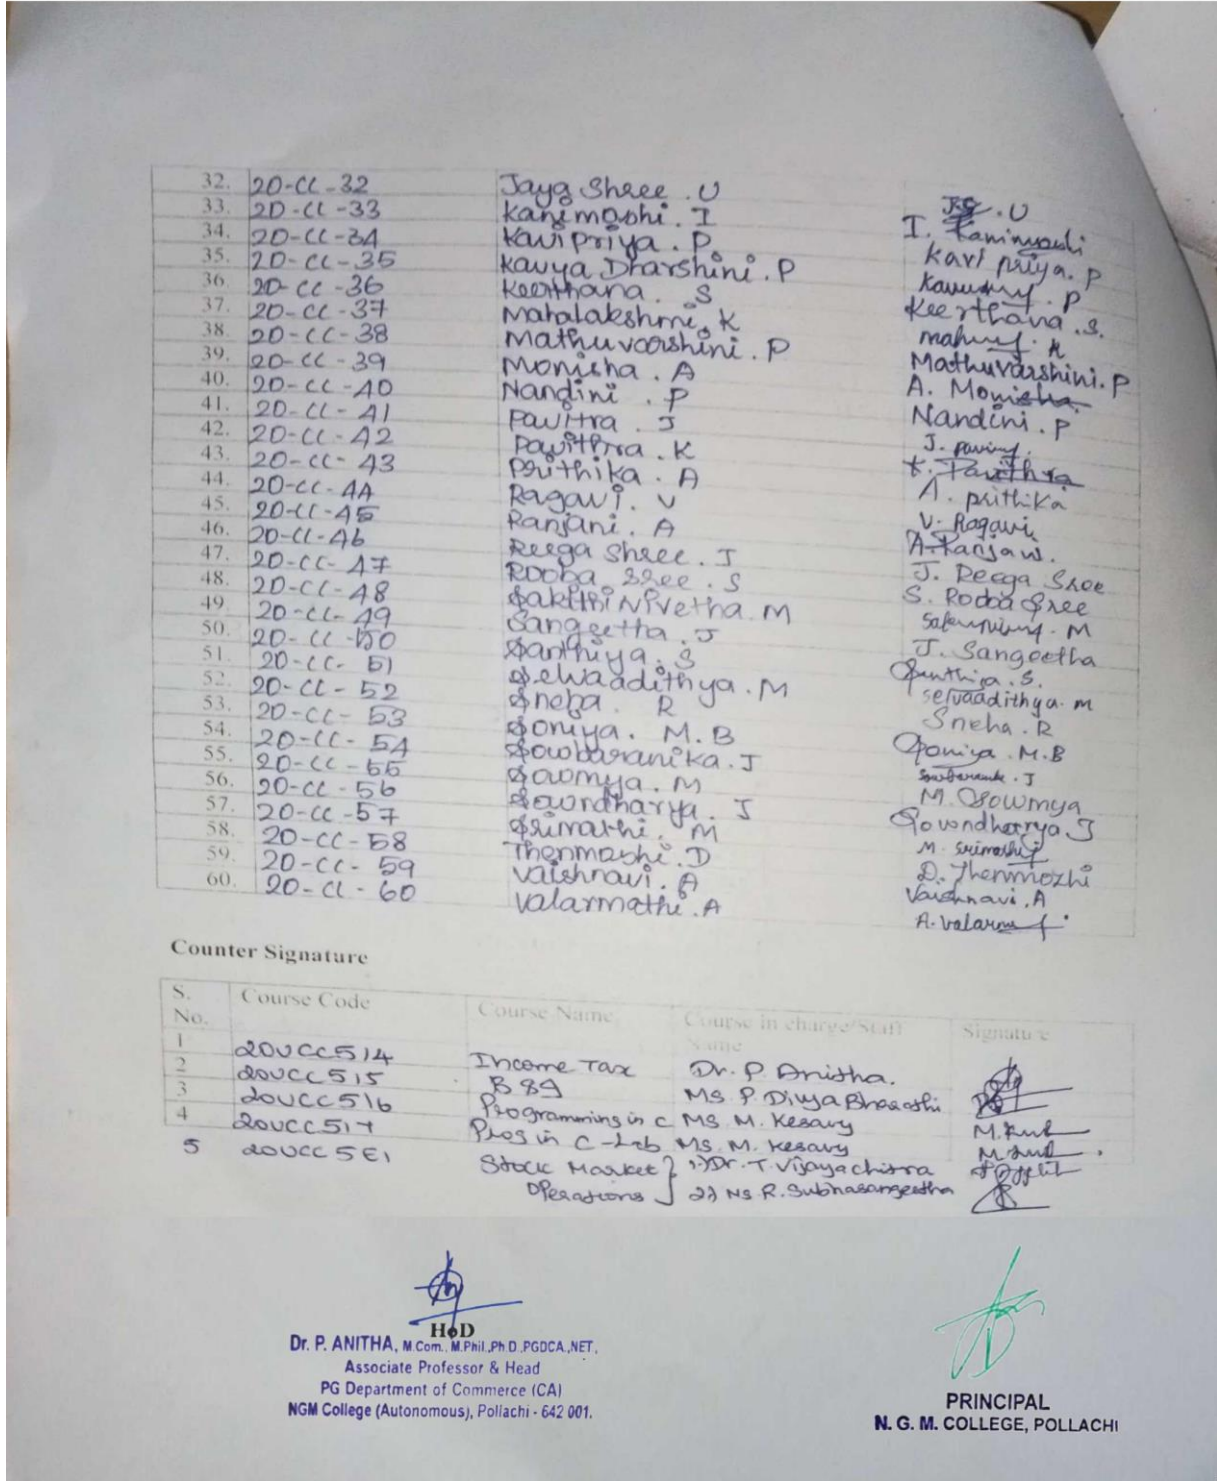 32. 20-CC-32 Jaya Shree . U J.S . U
33. 20-CC-33 Kanimozhi . I I. Kanimozhi
34. 20-CC-34 Kavi priya . P Kavi priya. P
35. 20-CC-35 Kavya Dharshini . P . P
36. 20-CC-36 Keerthana . S Keerthana .S.
37. 20-CC-37 Mahalakshmi. K . K
38. 20-CC-38 Mathuvarshini . P Mathuvarshini. P
39. 20-CC-39 Monisha . A A. Monisha
40. 20-CC-40 Nandini . P Nandini . P
41. 20-CC-41 Pavitra . J J.
42. 20-CC-42 Pavithra . K K. Pavithra
43. 20-CC-43 Prithika . A A. prithika
44. 20-CC-44 Ragavi . V V. Ragavi
45. 20-CC-45 Ranjani . A A. Ranjani.
46. 20-CC-46 Reega Shree . J J. Reega Sree
47. 20-CC-47 Rooba Sree . S S. Rooba Sree
48. 20-CC-48 Sakthi Nivetha. M . M
49. 20-CC-49 Sangeetha . J J. Sangeetha
50. 20-CC-50 Santhiya . S Santhiya . S.
51. 20-CC-51 Selvaadithya . M selvaadithya. m
52. 20-CC-52 Sneha . R Sneha . R
53. 20-CC-53 Soniya . M.B Soniya . M.B
54. 20-CC-54 Sowbaranika . J . J
55. 20-CC-55 Sowmya . M M. Sowmya
56. 20-CC-56 Sowndharya . J Sowndharya J
57. 20-CC-57 Srimathi . M M.
58. 20-CC-58 Thenmozhi . D D. Thenmozhi
59. 20-CC-59 Vaishnavi . A Vaishnavi . A
60. 20-CC-60 Valarmathi . A A.
Counter Signature
S. No. Course Code Course Name Course in charge/Staff Name Signature
1 20UCC514 Income Tax Dr. P. Anitha.
2 20UCC515 Ms. P. Divya Bharathi
3 20UCC516 Programming in C Ms. M. Kesavy
4 20UCC517 Prog in C-Lab Ms. M. Kesavy
5 20UCC5E1 Stock Market 1) Dr. T. Vijayachitra
Operations 2) Ms R. Subhasangeetha
HoD
Dr. P. ANITHA, M.Com., M.Phil.,Ph.D.,PGDCA.,NET.,
Associate Professor & Head
PG Department of Commerce (CA)
NGM College (Autonomous), Pollachi - 642 001.
PRINCIPAL
N. G. M. COLLEGE, POLLACHI